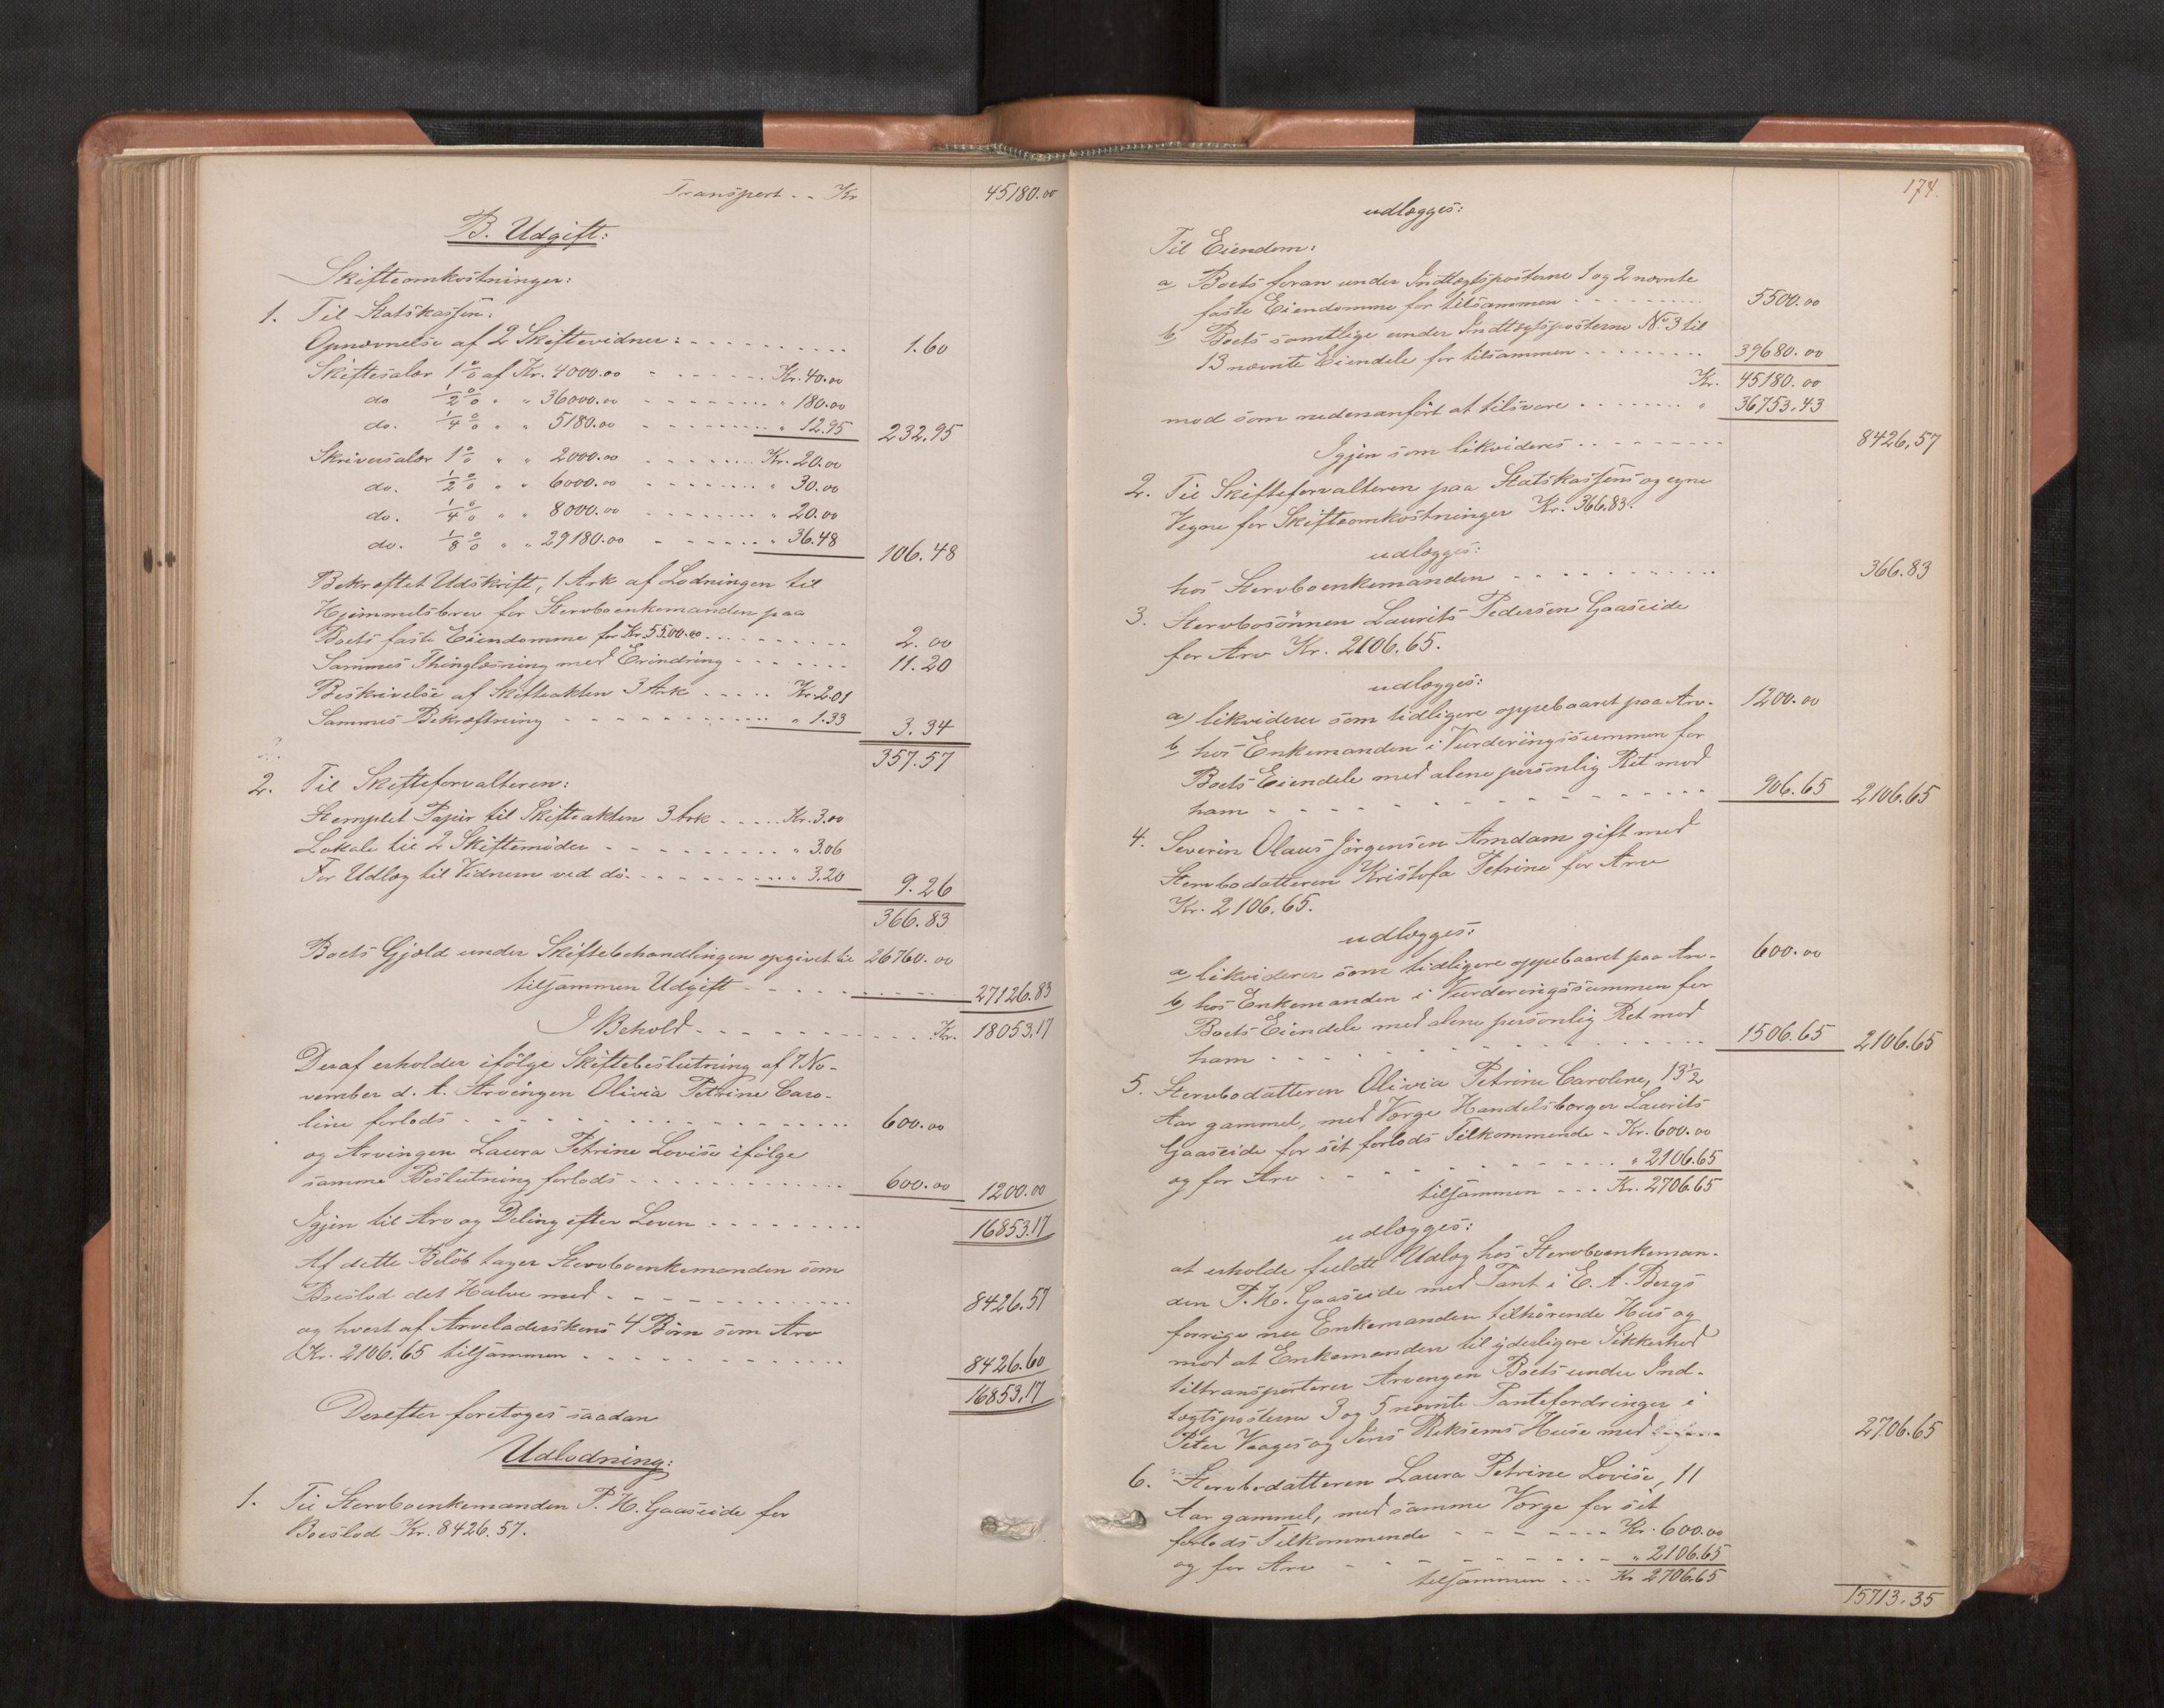 Transport . . Kr 45180.00
B. Udgift:
Skifteomkostninger:
1. Til Statskassen:
Opnævnelse af 2 Skiftevidner: 1.60
Skiftesalær 1 % af Kr. 4000.00 - Kr. 40.00
do 1/2 % " " 36000.00 " 180.00
do. 1/4 % " " 5180.00 " 12.95 232.95
Skriversalær 1 % " " 2000.00 Kr. 20.00
do. 1/2 % " " 6000.00 " 30.00
do. 1/4 % " " 8000.00 " 20.00
do. 1/8 % " " 29180.00 " 36.48 106.48
Bekræftet Udskrift, 1 Ark af Lodningen til
Hjemmelsbrev for Stervboenkemanden paa
Boets faste Eiendomme for Kr. 5500.00 2.00
Sammes Thinglæsning med Erindring 11.20
Beskrivelse af Skifteakten 3 Ark Kr. 2.01
Sammes Bekræftning " 1.33 3.34
357.57
2. Til Skifteforvalteren:
Stemplet Papir til Skifteakten 3 Ark Kr. 3.00
Lokale til 2 Skiftemøder " 3.06
For Udlæg til Vidnerne ved do. " 3.20 9.26
366.83
Boets Gjæld under Skiftebehandlingen opgivet til 26760.00
tilsammen Udgift 27126.83
I Behold Kr. 18053.17
Deraf erholder ifølge Skiftebeslutning af 7 No-
vember d. A. Arvingen Olivia Petrine Caro-
line forlods 600.00
og Arvingen Laura Petrine Lovise ifølge
samme Beslutning forlods 600.00 1200.00
Igjen til Arv og Deling efter Loven 16853.17
Af dette Beløb tager Stervboenkemanden som
Boeslod det Halve med 8426.57
og hvert af Arveladerskens 4 Børn som Arv
Kr. 2106.65 tilsammen 8426.60
16853.17
Derefter foretoges saadan
Udlodning:
1. Til Stervboenkemanden P. H. Gaaseide for
Boeslod Kr. 8426.57.
174.
udlægges:
Til Eiendom:
a Boets foran under Indtægtsposterne 1 og 2 nævnte
faste Eiendomme for tilsammen 5500.00
b Boets samtlige under Indtægtsposterne No. 3 til
13 nævnte Eiendele for tilsammen 39680.00
Kr. 45180.00
mod som nedenanført at tilsvare " 36753.43
Igjen som likvideres 8426.57
2. Til Skifteforvalteren paa Statskassens og egne
Vegne for Skifteomkostninger Kr. 366.83.
udlægges:
hos Stervboenkemanden 366.83
3. Stervbosønnen Laurits Pedersen Gaaseide
for Arv Kr. 2106.65.
udlægges:
a) likviderer som tidligere oppebaaret paa Arv. 1200.00
b hos Enkemanden i Vurderingssummen for
Boets Eiendele med alene personlig Ret mod
ham 906.65 2106.65
4. Severin Olaus Jørgensen Amdam gift med
Stervbodatteren Kristofa Petrine for Arv
Kr. 2106.65.
udlægges:
a likviderer som tidligere oppebaaret paa Arv. 600.00
b hos Enkemanden i Vurderingssummen for
Boets Eiendele med alene personlig Ret mod
ham 1506.65 2106.65
5. Stervbodatteren Olivia Petrine Caroline, 13 1/2
Aar gammel, med Værge Handelsborger Laurits
Gaaseide for sit forlods Tilkommende - Kr. 600.00
og for Arv " 2106.65
tilsammen Kr. 2706.65
udlægges:
at erholde fuldt Udlæg hos Stervboenkeman-
den P. H. Gaaseide med Pant i E. A. Bergs
forrige nu Enkemanden tilhørende Hus og
mod at Enkemanden til yderligere Sikkerhed
tiltransporterer Arvingen Boets under Ind-
tægtsposterne 3 og 5 nævnte Pantefordringer i
Peter Vaages og Jens Riksems Huse med 2706.65
6. Stervbodatteren Laura Petrine Lovise, 11
Aar gammel, med samme Værge for sit
forlods Tilkommende Kr. 600.00
og for Arv " 2106.65
tilsammen Kr 2706.65
15713.35